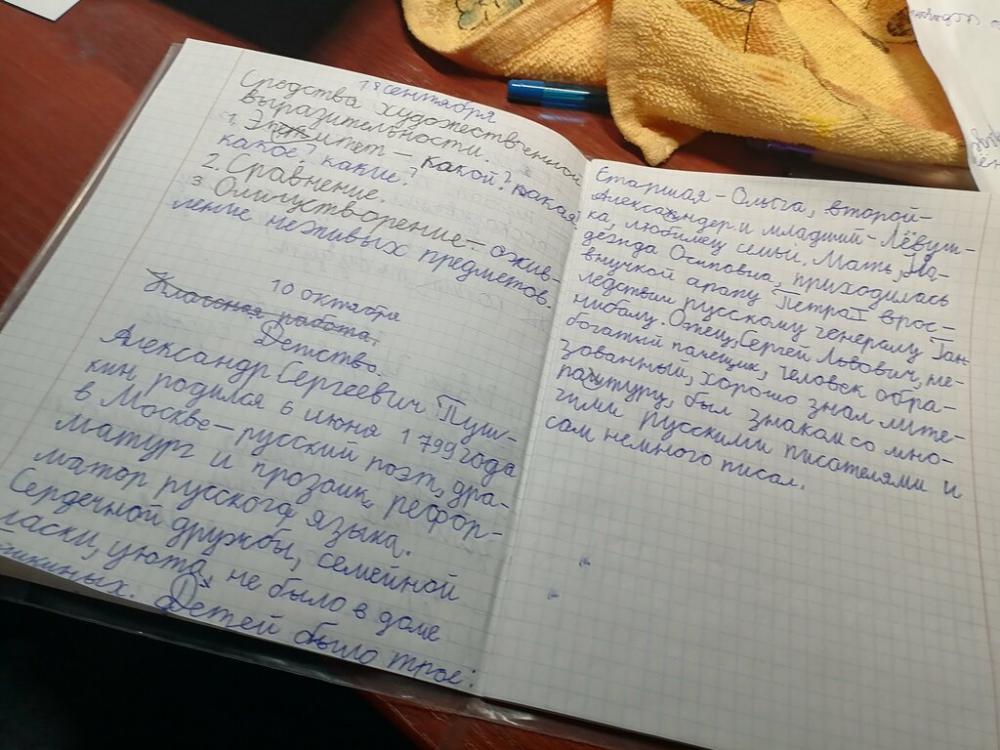 18 сентября
Средства художественной
выразительности.
1. Эпитет – какой? какая
какое? какие?
2. Сравнение.
3 Олицустворение – ожив-
ление неживых предметов.
10 октября
Классная работа.
Детство.
Александр Сергеевич Пуш-
кин, родился 6 июня 1799 года
в Москве – русский поэт, дра-
матург и прозаик, рефор-
матор русского языка.
Сердечной дружбы, семейной
ласки, уюта, не было в доме
Детей было трое:
Старшая – Ольга, второй –
Александер и младший – Лёвуш-
ка, любимец семьи. Мать, На-
дежда Осиповна, приходилась
внучкой арапу Петра I врос-
ледствии русскому генералу Ган
нибалу. Отец, Сергей Львович, не-
богатый памещик, человек обра-
зованный, хорошо знал лите-
ратуру, был знаком со мно-
гими Русскими писателями и
сам немного писал.